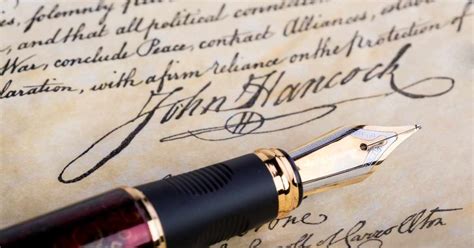 es, solemnly publish
, and that all political connection
War, conclude Peace, contract Alliances, establis
laration, with a firm reliance on the Protection of
John Hancock
H
one
s Carroll of Carrollton